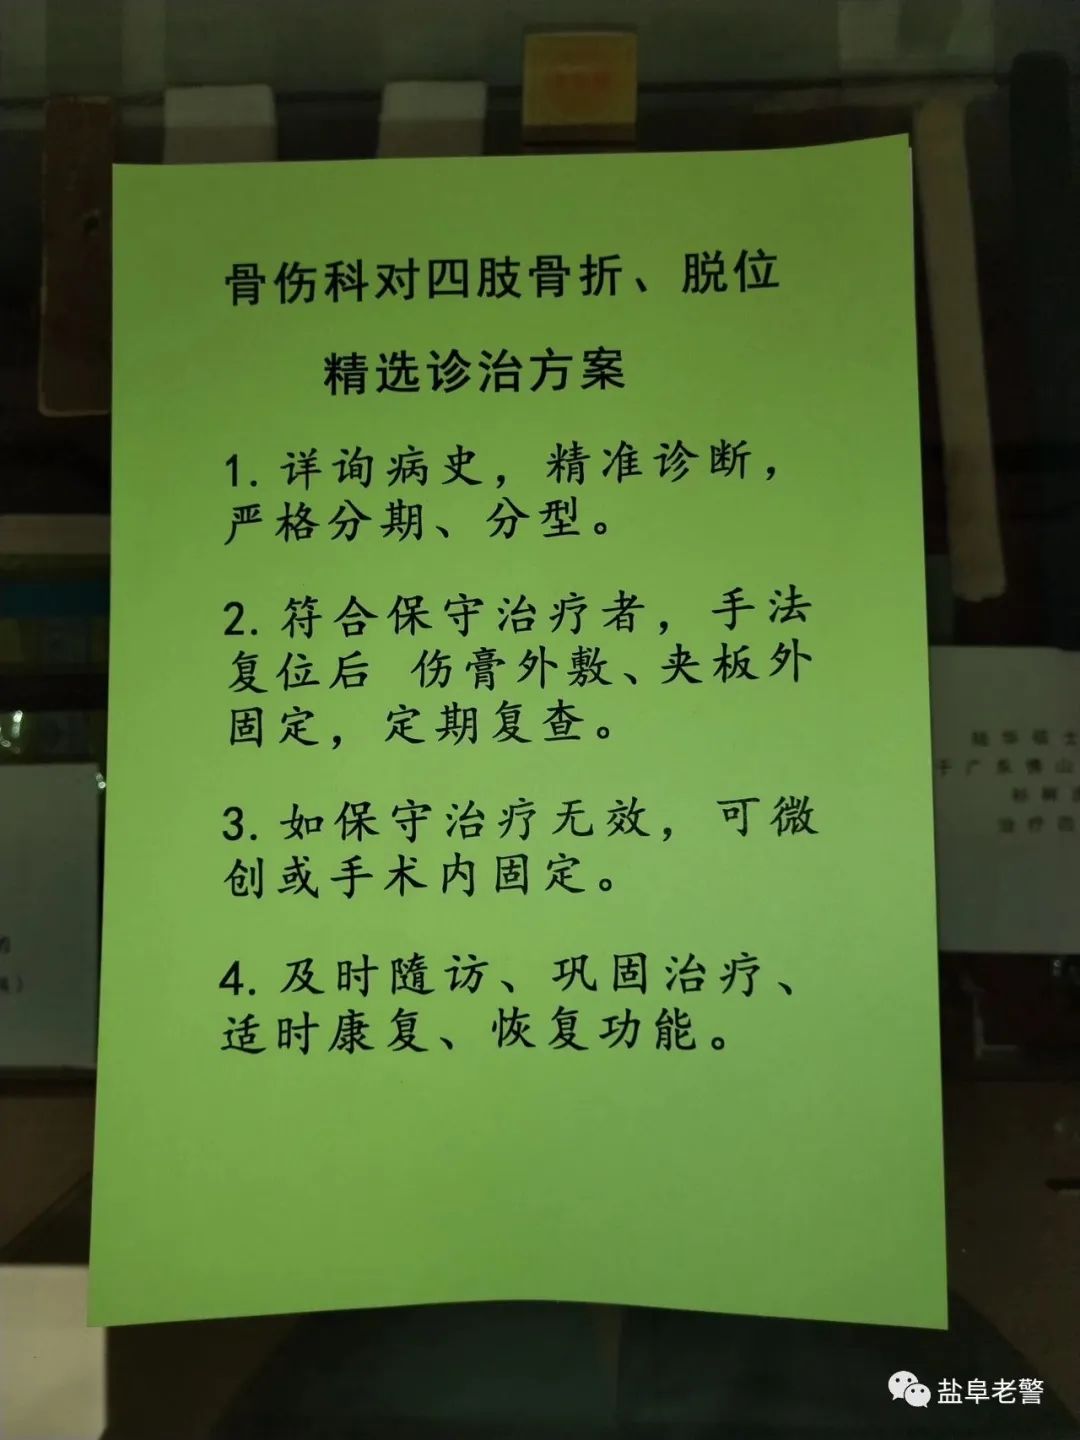 骨伤科对四肢骨折、脱位
精选诊治方案
1. 详询病史，精准诊断，
严格分期、分型。
2. 符合保守治疗者，手法
复位后 伤膏外敷、夹板外
固定，定期复查。
3. 如保守治疗无效，可微
创或手术内固定。
4. 及时随访、巩固治疗、
适时康复、恢复功能。
于广东佛山
盐阜老警